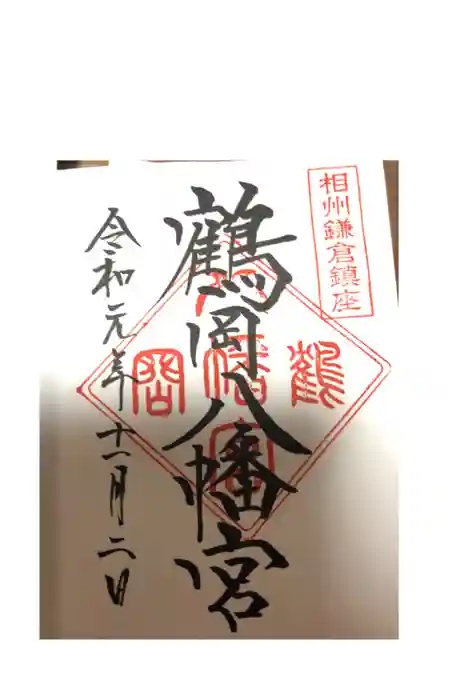 相州鎌倉鎮座
鶴岡八幡宮
鶴 岡 八 幡 宮
令和元年十一月二日